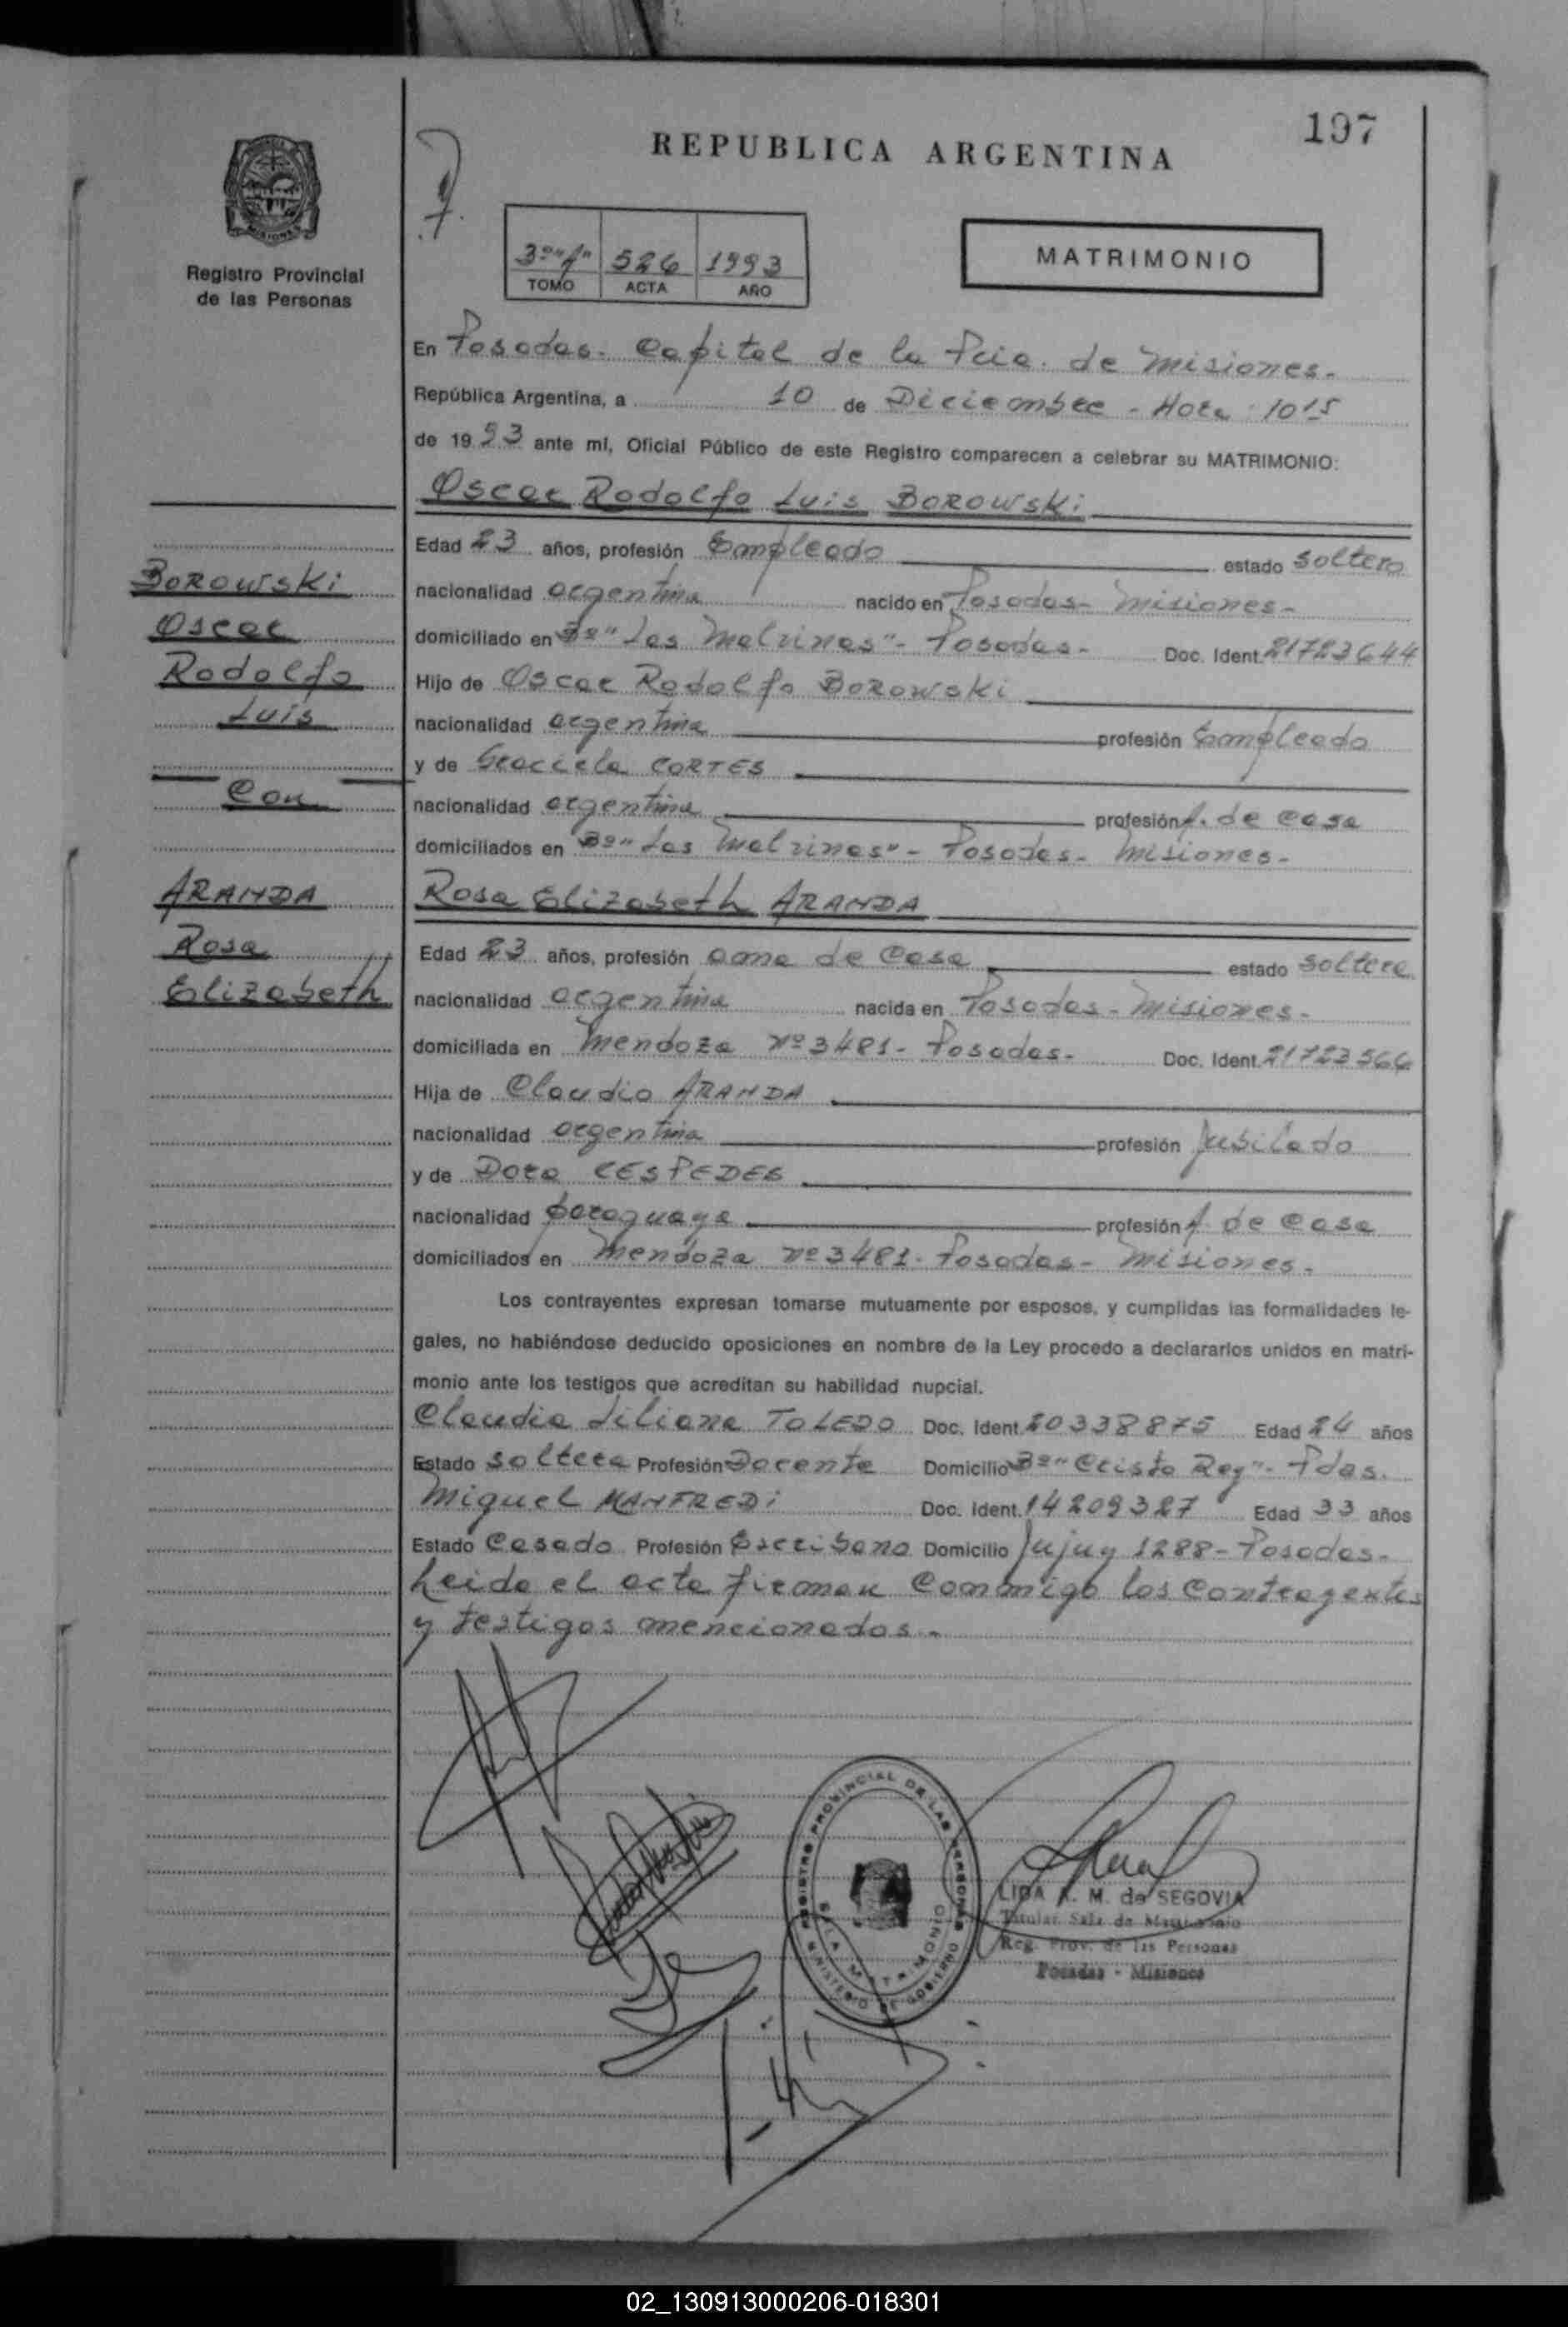 197
REPUBLICA ARGENTINA
Registro Provincial
de las Personas
3º "f" 526 1993
TOMO ACTA AÑO
MATRIMONIO
En Posadas- Capital de la Pcia. de Misiones-
República Argentina, a 10 de Diciembre - Hora: 1015
de 1993 ante mí, Oficial Público de este Registro comparecen a celebrar su MATRIMONIO:
Oscar Rodolfo Luis BOROWSKi
Edad 23 años, profesión Empleado estado soltero
BOROWSKi
nacionalidad argentina nacido en Posadas- Misiones-
Oscar
domiciliado en Bº "Las Malvinas"- Posadas- Doc. Ident. 21723644
Rodolfo
Hijo de Oscar Rodolfo BOROWSKi
Luis
nacionalidad argentina profesión Empleado
y de Graciela CORTES
Con
nacionalidad argentina profesión A. de Casa
domiciliados en Bº "Las Malvinas"- Posadas- Misiones-
ARANDA
Rosa Elizabeth ARANDA
Rosa
Edad 23 años, profesión ama de Casa estado soltera
Elizabeth
nacionalidad argentina nacida en Posadas- Misiones-
domiciliada en Mendoza Nº 3481- Posadas- Doc. Ident. 21723566
Hija de Claudio ARANDA
nacionalidad argentina profesión Jubilado
y de Dora CESPEDES
nacionalidad paraguaya profesión A. de Casa
domiciliados en Mendoza Nº 3481- Posadas- Misiones-
Los contrayentes expresan tomarse mutuamente por esposos, y cumplidas las formalidades le-
gales, no habiéndose deducido oposiciones en nombre de la Ley procedo a declararlos unidos en matri-
monio ante los testigos que acreditan su habilidad nupcial.
Claudia Liliana TOLEDO Doc. Ident. 20338875 Edad 24 años
Estado soltera Profesión Docente Domicilio Bº "Cristo Rey"- Pdas.
Miguel MANFREDi Doc. Ident. 14209327 Edad 33 años
Estado Casado Profesión Escribano Domicilio Jujuy 1288- Posadas-
Leida el acta firman Conmigo los Contrayentes
y testigos mencionados-
REGISTRO PROVINCIAL DE LAS PERSONAS
SALA MATRIMONIO
MINISTERIO DE GOBIERNO
LIDA A. M. de SEGOVIA
Titular Sala de Matrimonio
Reg. Prov. de las Personas
Posadas - Misiones
02_130913000206-018301